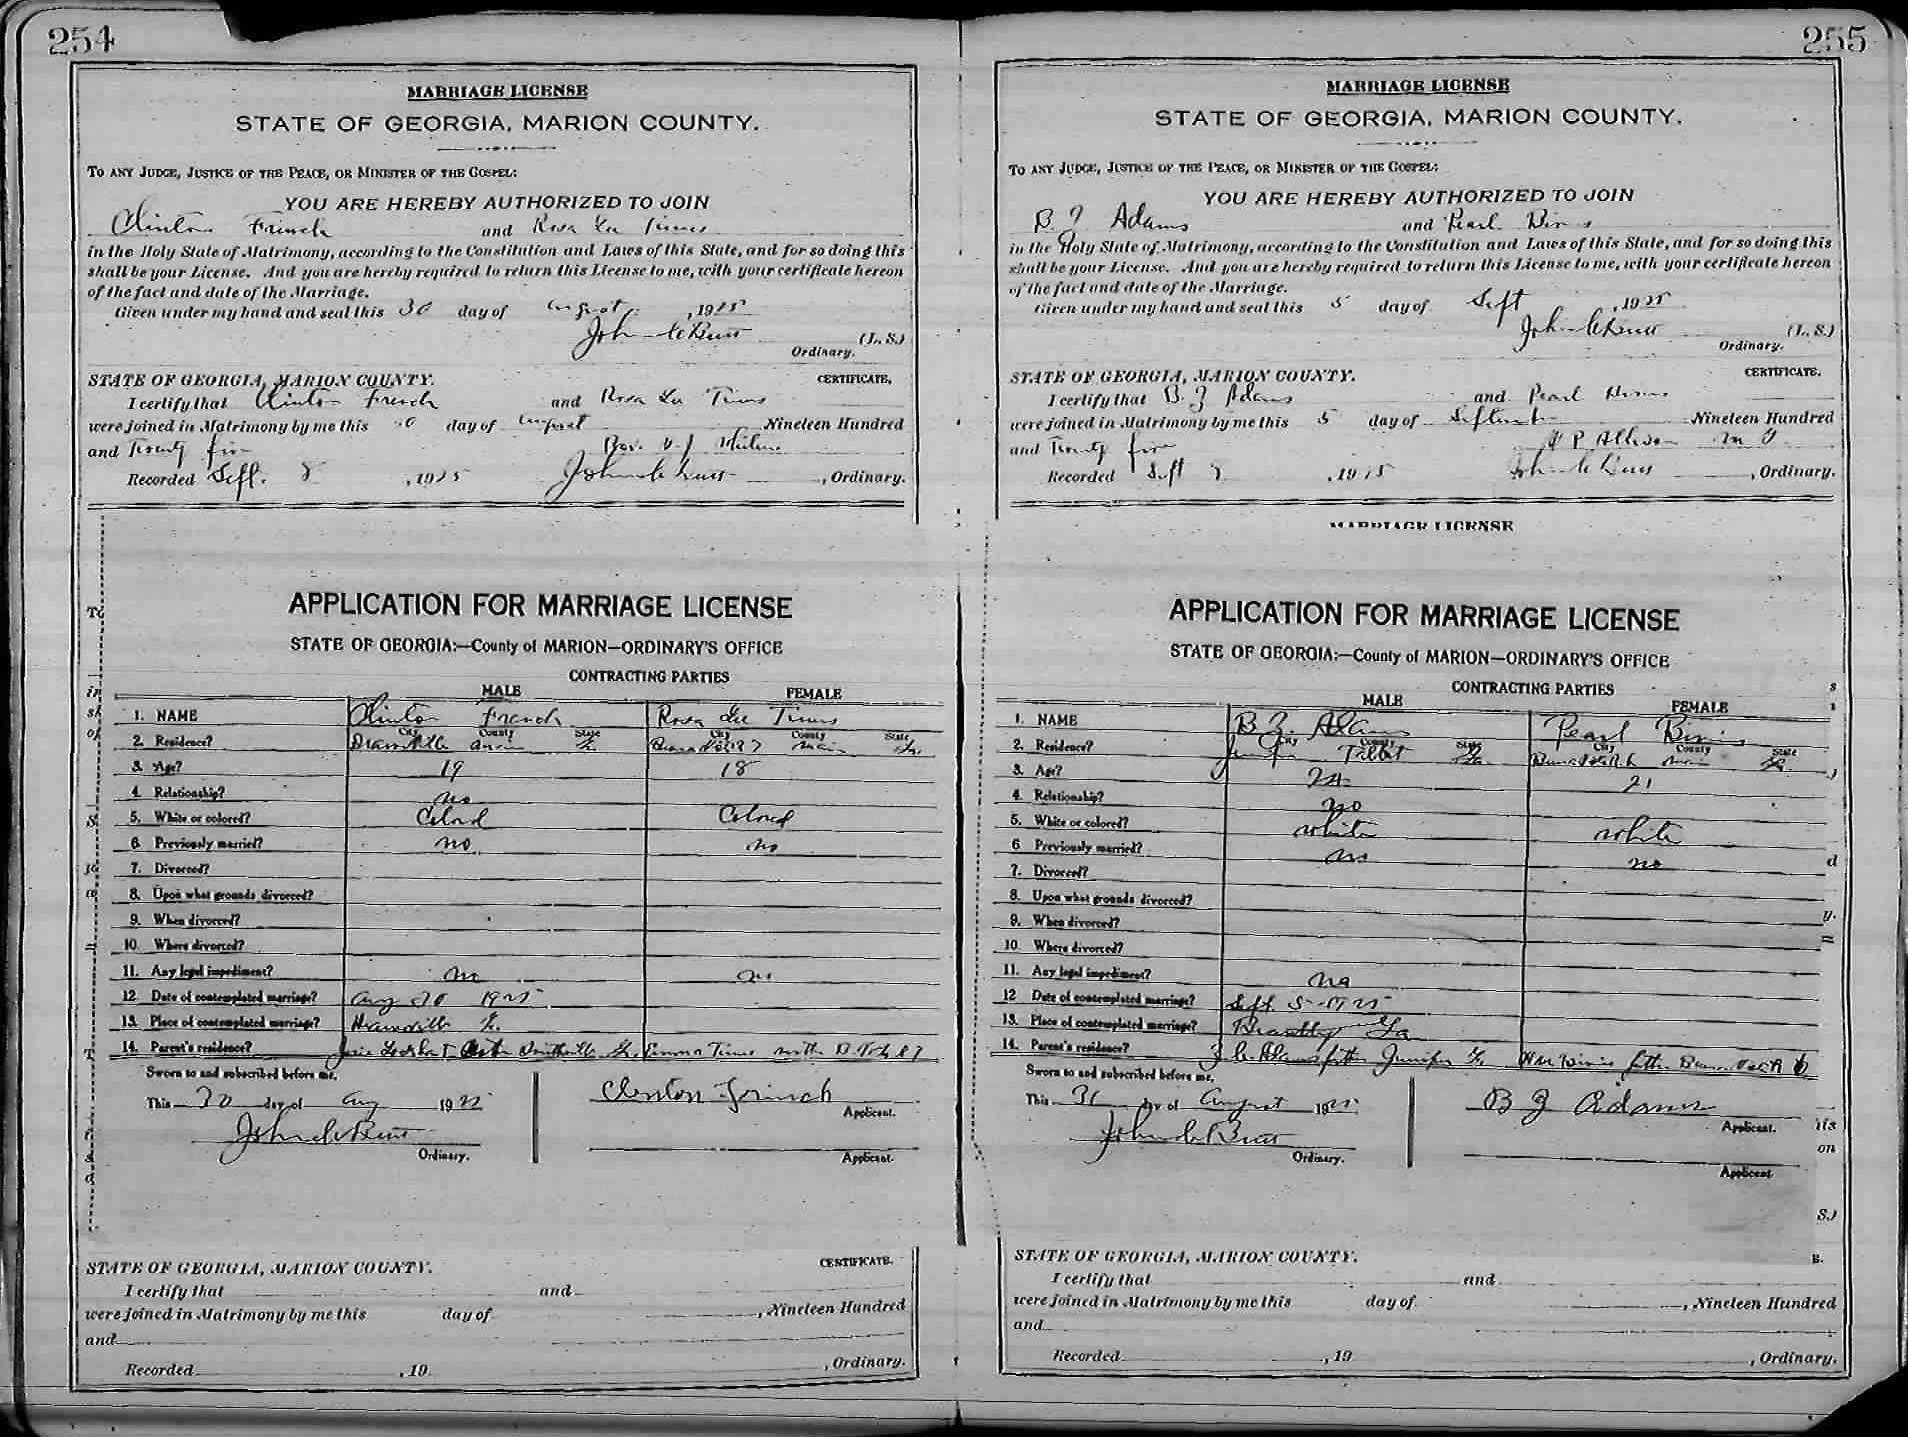 254
MARRIAGE LICENSE
STATE OF GEORGIA, MARION COUNTY.
TO ANY JUDGE, JUSTICE OF THE PEACE, OR MINISTER OF THE GOSPEL:
YOU ARE HEREBY AUTHORIZED TO JOIN
Clinton French and Rosa Lee Tims
in the Holy State of Matrimony, according to the Constitution and Laws of this State, and for so doing this
shall be your License. And you are hereby required to return this License to me, with your certificate hereon
of the fact and date of the Marriage.
Given under my hand and seal this 30 day of August, 1925
John C Butt (L. S.)
Ordinary.
STATE OF GEORGIA, MARION COUNTY. CERTIFICATE.
I certify that Clinton French and Rosa Lee Tims
were joined in Matrimony by me this 30 day of August Nineteen Hundred
and Twenty five Rev.
Recorded Sept. 8, 1925 John C Butt, Ordinary.
APPLICATION FOR MARRIAGE LICENSE
STATE OF GEORGIA:—County of MARION—ORDINARY'S OFFICE
CONTRACTING PARTIES
MALE FEMALE
1. NAME Clinton French Rosa Lee Tims
City County State City County State
2. Residence? Ga. Buena Vista R 7 Marion Ga.
3. Age? 19 18
4. Relationship? no
5. White or colored? Colord Colored
6. Previously married? no no
7. Divorced?
8. Upon what grounds divorced?
9. When divorced?
10. Where divorced?
11. Any legal impediment? no no
12. Date of contemplated marriage? Aug 30 1925
13. Place of contemplated marriage? Ga.
14. Parent's residence? Lockhart Ga. Emma Tims mother B. Vista R 7
Sworn to and subscribed before me,
This 30 day of Aug 1925 Clenton French
Applicant.
John C Butt
Ordinary. Applicant.
STATE OF GEORGIA, MARION COUNTY. CERTIFICATE.
I certify that and
were joined in Matrimony by me this day of, Nineteen Hundred
and
Recorded, 19, Ordinary.
255
MARRIAGE LICENSE
STATE OF GEORGIA, MARION COUNTY.
TO ANY JUDGE, JUSTICE OF THE PEACE, OR MINISTER OF THE GOSPEL:
YOU ARE HEREBY AUTHORIZED TO JOIN
B. Z Adams and Pearl Bivins
in the Holy State of Matrimony, according to the Constitution and Laws of this State, and for so doing this
shall be your License. And you are hereby required to return this License to me, with your certificate hereon
of the fact and date of the Marriage.
Given under my hand and seal this 5 day of Sept, 1925
John C Butt (L. S.)
Ordinary.
STATE OF GEORGIA, MARION COUNTY. CERTIFICATE.
I certify that B. Z Adams and Pearl Bivins
were joined in Matrimony by me this 5 day of September Nineteen Hundred
and Twenty five P Allison M G
Recorded Sept 8, 1925 John C Butt, Ordinary.
MARRIAGE LICENSE
APPLICATION FOR MARRIAGE LICENSE
STATE OF GEORGIA:—County of MARION—ORDINARY'S OFFICE
CONTRACTING PARTIES
MALE FEMALE
1. NAME B. Z. Adams Pearl Bivins
City County State City County State
2. Residence? Juniper Talbot Ga Buena Vista R 6 Marion Ga.
3. Age? 24 21
4. Relationship? no
5. White or colored? white white
6. Previously married? no no
7. Divorced?
8. Upon what grounds divorced?
9. When divorced?
10. Where divorced?
11. Any legal impediment? no
12. Date of contemplated marriage? Sept. 5 - 1925
13. Place of contemplated marriage? Brantley Ga
14. Parent's residence? Adams father Junipr Ga Bivins father Buena Vista R 6
Sworn to and subscribed before me,
This 31 day of August 1925 B Z Adams
Applicant.
John C Butt
Ordinary. Applicant.
STATE OF GEORGIA, MARION COUNTY.
I certify that and
were joined in Matrimony by me this day of, Nineteen Hundred
and
Recorded, 19, Ordinary.